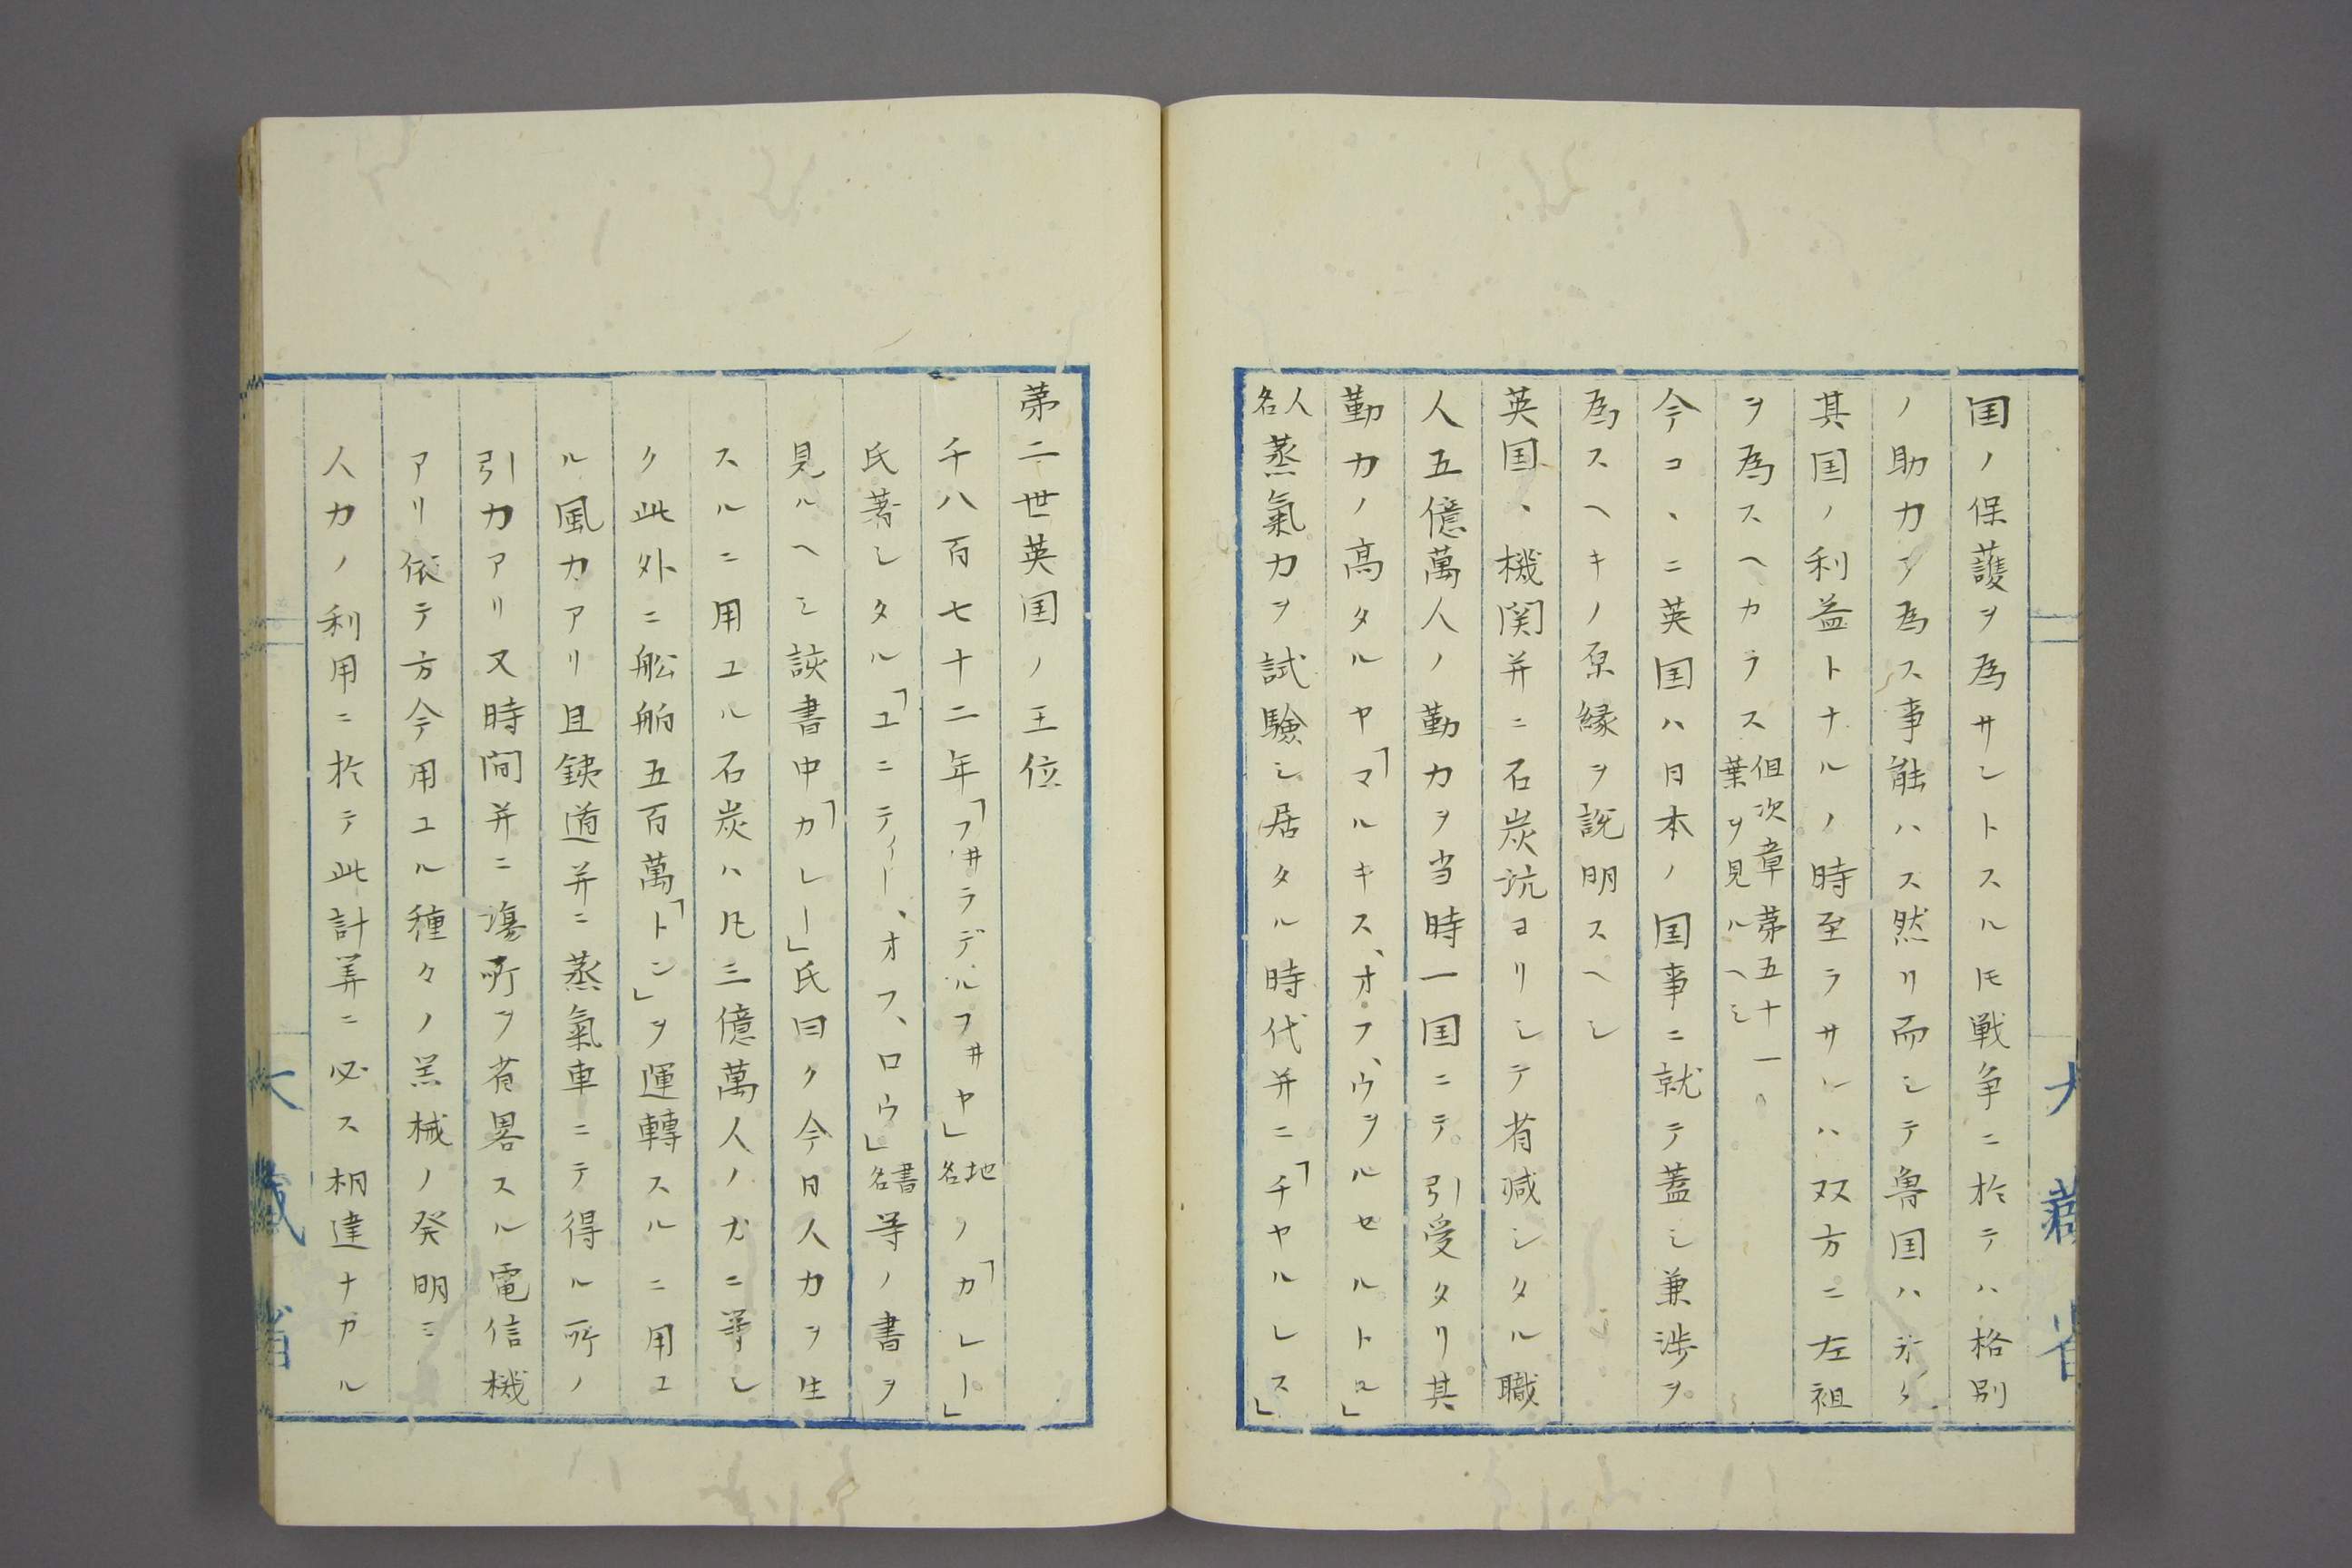 国ノ保護ヲ為サントスルモ戦争ニ於テハ格別
ノ助力ヲ為ス事能ハス然リ而シテ魯国ハ亦タ
其国ノ利益トナルノ時至ラサレハ双方ニ左袒
ヲ為スヘカラス但次章第五十一葉ヲ見ルヘシ
今コヽニ英国ハ日本ノ国事ニ就テ蓋シ兼渉ヲ
為スヘキノ原縁ヲ説明スヘシ
英国ヽ機関并ニ石炭坑ヨリシテ省減シタル職
人五億萬人ノ勤力ヲ当時一国ニテ引受タリ其
勤力ノ高タルヤ「マルキス、オフ、ウヲルセルトル」
人名蒸氣力ヲ試驗シ居タル時代并ニ「チヤルレス」
第二世英国ノ王位
千八百七十二年「フ井ラデルフ井ヤ」地名ノ「カレー」
氏著シタル「ユニティー、オフ、ロウ」書名等ノ書ヲ
見ルヘシ該書中「カレー」氏曰ク今日人力ヲ生
スルニ用ユル石炭ハ凡三億萬人ノ力ニ等シ
ク此外ニ舩舶五百萬「トン」ヲ運轉スルニ用ユ
ル風力アリ且銕道并ニ蒸氣車ニテ得ル所ノ
引力アリ又時間并ニ塲所ヲ省畧スル電信機
アリ依テ方今用ユル種々ノ噐械ノ発明ミ
人力ノ利用ニ於テ此計算ニ必ス相違ナカル
大藏省
大藏省